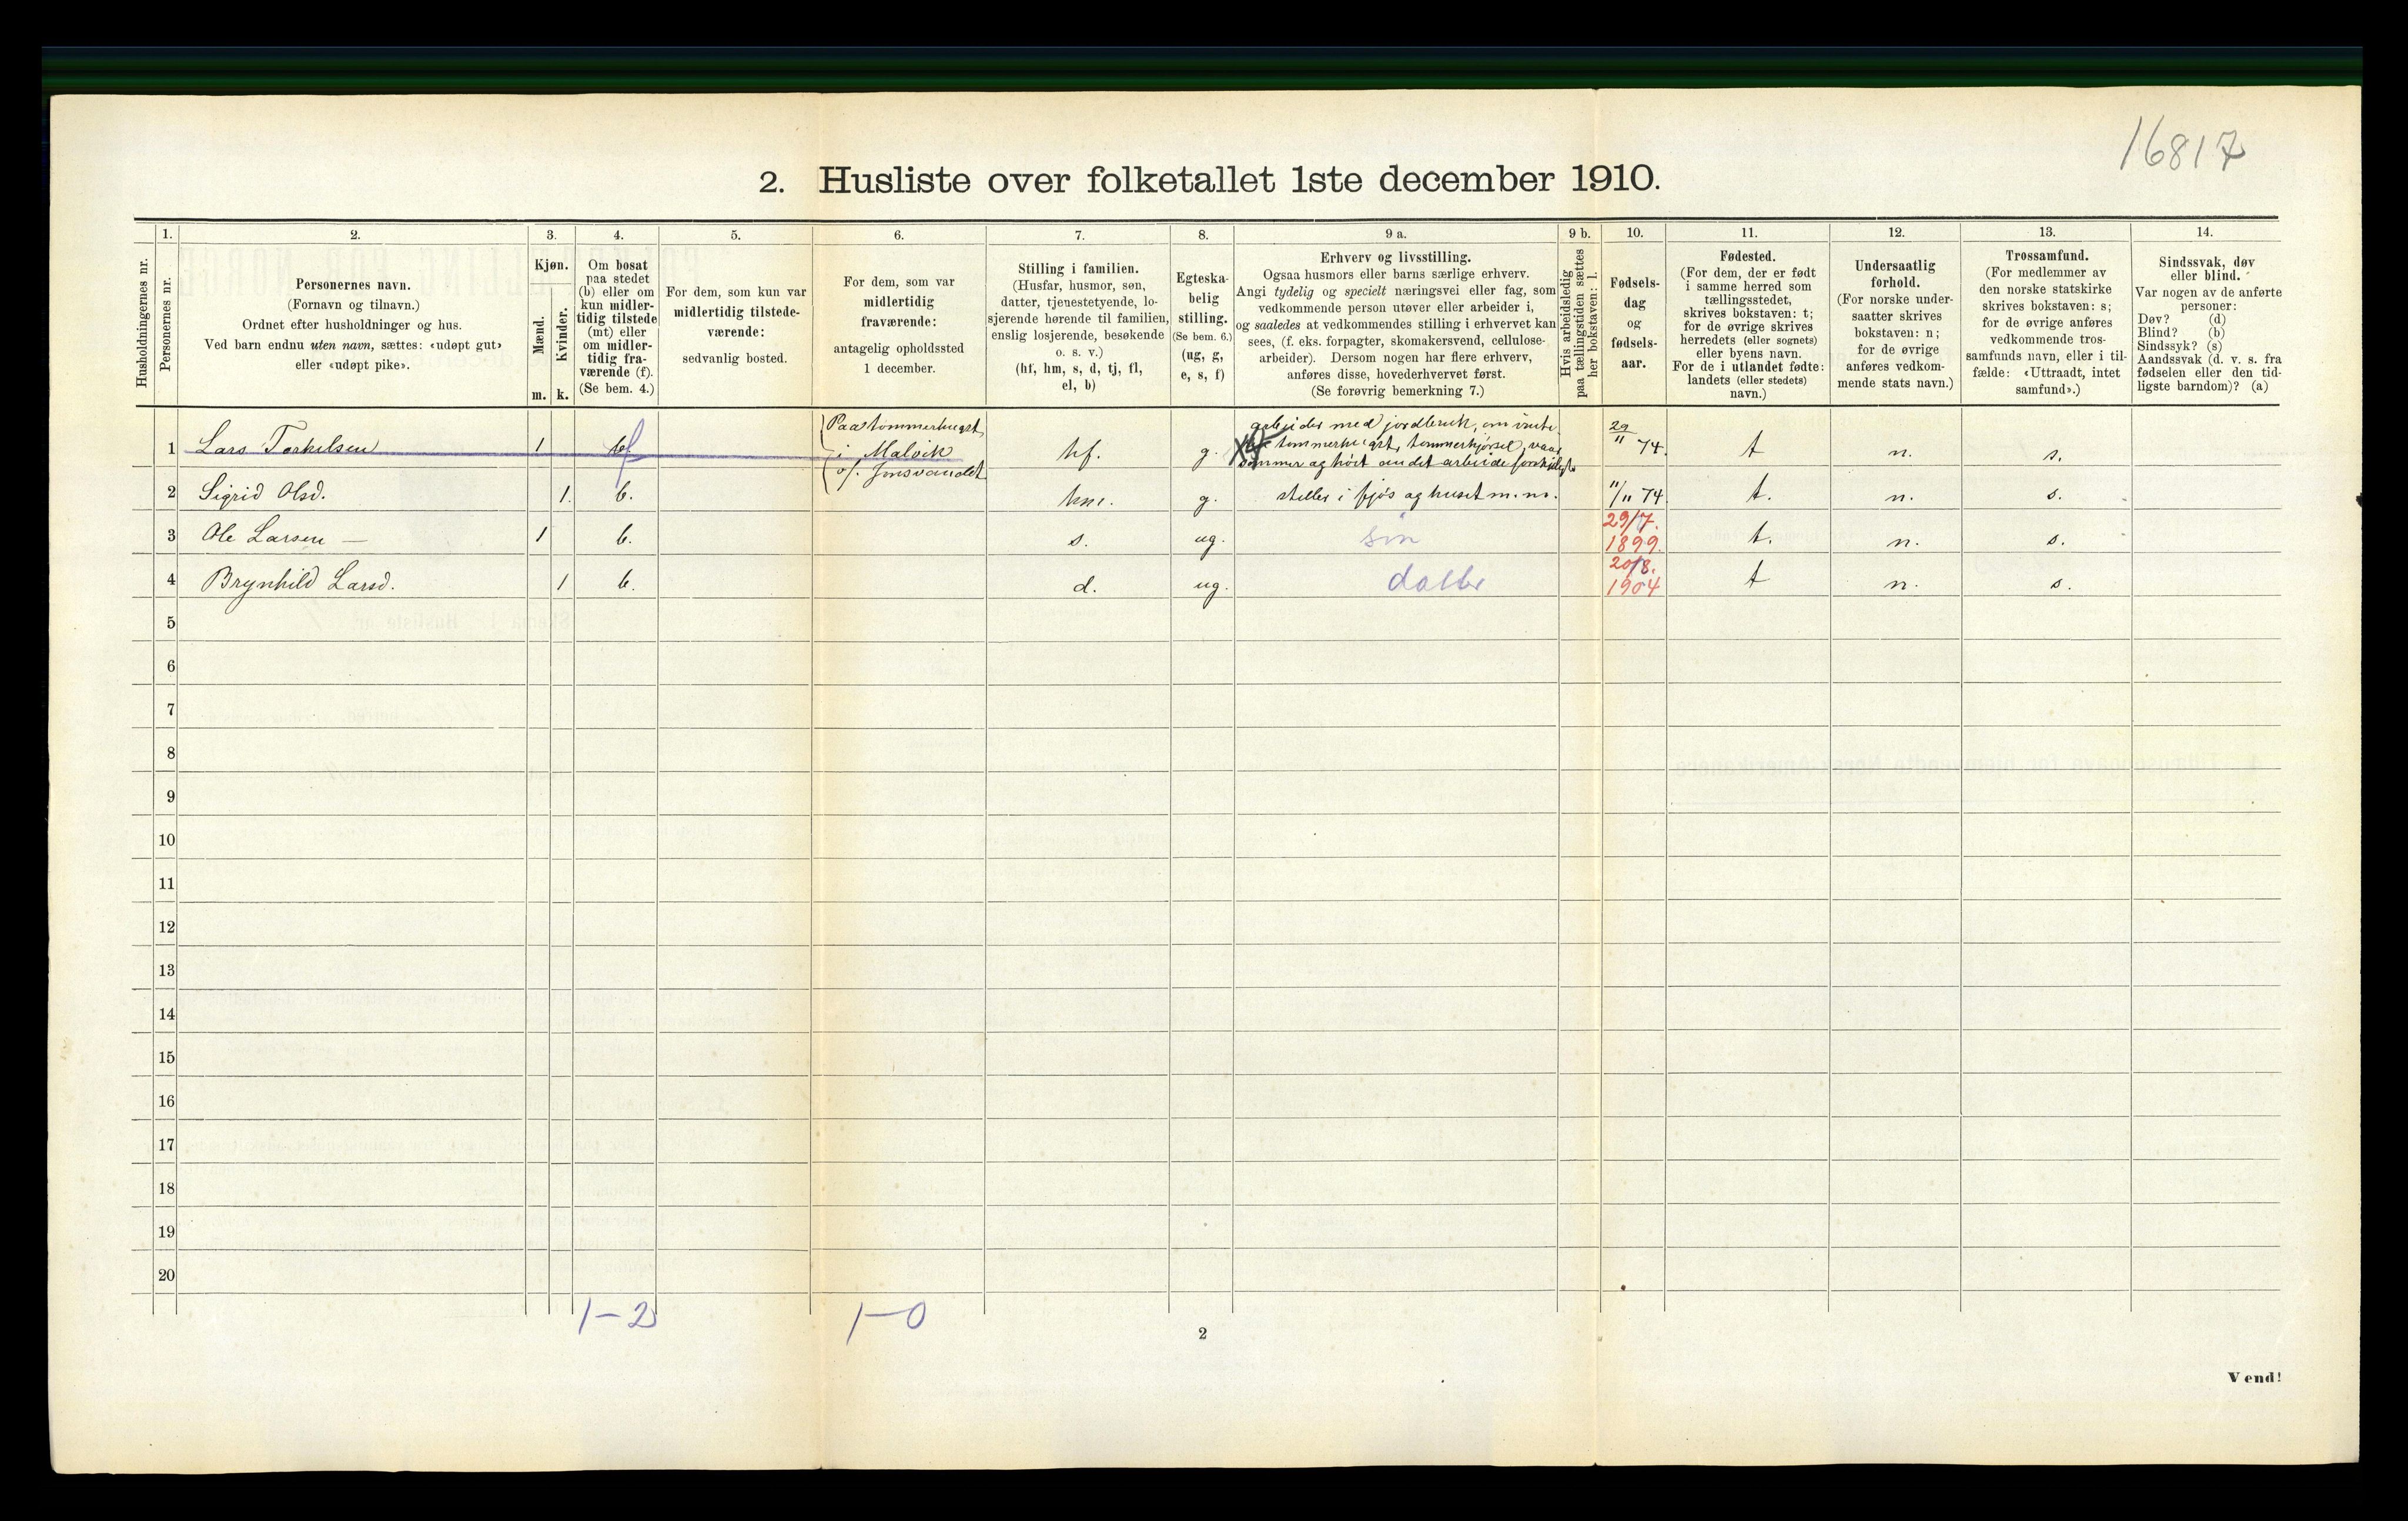 16817
2. Husliste over folketallet 1ste december 1910.
1. 2. 3. 4. 5. 6. 7. 8. 9 a. 9 b. 10. 11. 12. 13. 14.
Husholdningernes nr.
Personernes nr.
Personernes navn.
(Fornavn og tilnavn.)
Ordnet efter husholdninger og hus.
Ved barn endnu uten navn, sættes: «udøpt gut»
eller «udøpt pike».
Kjøn.
Mænd.
Kvinder.
m. k.
Om bosat
paa stedet
(b) eller om
kun midler-
tidig tilstede
(mt) eller
om midler-
tidig fra-
værende (f).
(Se bem. 4.)
For dem, som kun var
midlertidig tilstede-
værende:
sedvanlig bosted.
For dem, som var
midlertidig
fraværende:
antagelig opholdssted
1 december.
Stilling i familien.
(Husfar, husmor, søn,
datter, tjenestetyende, lo-
sjerende hørende til familien,
enslig losjerende, besøkende
o. s. v.)
(hf, hm, s, d, tj, fl,
el, b)
Egteska-
belig
stilling.
(Se bem. 6.)
(ug, g,
e, s, f)
Erhverv og livsstilling.
Ogsaa husmors eller barns særlige erhverv.
Angi tydelig og specielt næringsvei eller fag, som
vedkommende person utøver eller arbeider i,
og saaledes at vedkommendes stilling i erhvervet kan
sees, (f. eks. forpagter, skomakersvend, cellulose-
arbeider). Dersom nogen har flere erhverv,
anføres disse, hovederhvervet først.
(Se forøvrig bemerkning 7.)
Hvis arbeidsledig
paa tællingstiden sættes
her bokstaven: l.
Fødsels-
dag
og
fødsels-
aar.
Fødested.
(For dem, der er født
i samme herred som
tællingsstedet,
skrives bokstaven: t;
for de øvrige skrives
herredets (eller sognets)
eller byens navn.
For de i utlandet fødte:
landets (eller stedets)
navn.)
Undersaatlig
forhold.
(For norske under-
saatter skrives
bokstaven: n;
for de øvrige
anføres vedkom-
mende stats navn.)
Trossamfund.
(For medlemmer av
den norske statskirke
skrives bokstaven: s;
for de øvrige anføres
vedkommende tros-
samfunds navn, eller i til-
fælde: «Uttraadt, intet
samfund».)
Sindssvak, døv
eller blind.
Var nogen av de anførte
personer:
Døv? (d)
Blind? (b)
Sindssyk? (s)
Aandssvak (d. v. s. fra
fødselen eller den tid-
ligste barndom)? (a)
1 Lars Torkelsen 1 f Paa tommerhugst i Malvik v/. Jonsvandet hf. g. arbeider med jordbruk, om vinte- tømmerhugst, tømmerkjørsel, vaar sommer og høst andet arbeide 29/11 74. t n. s.
2 Sigrid Olsd. 1. b. hm. g. steller i fjøs og huset m. m. 11/11 74 t. n. s.
3 Ole Larsen — 1 b. s. ug. søn 29/7. 1899. t. n. s.
4 Brynhild Larsd. 1 b. d. ug. datter 20/8. 1904 t n. s.
5
6
7
8
9
10
11
12
13
14
15
16
17
18
19
20
1-2 1-0
2
Vend!